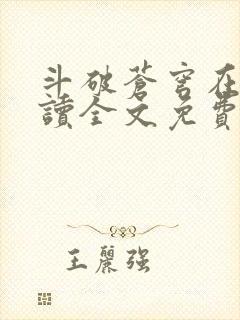 斗破蒼穹在
讀全文免費
王麗强